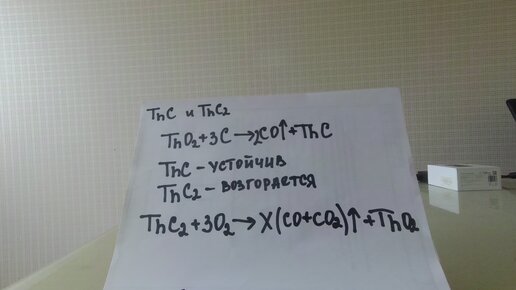 ThC и ThC₂
ThO₂+3C→2CO↑+ThC
ThC – устойчив
ThC₂ – возгорается
ThC₂+3O₂→X(CO+CO₂)↑+ThO₂